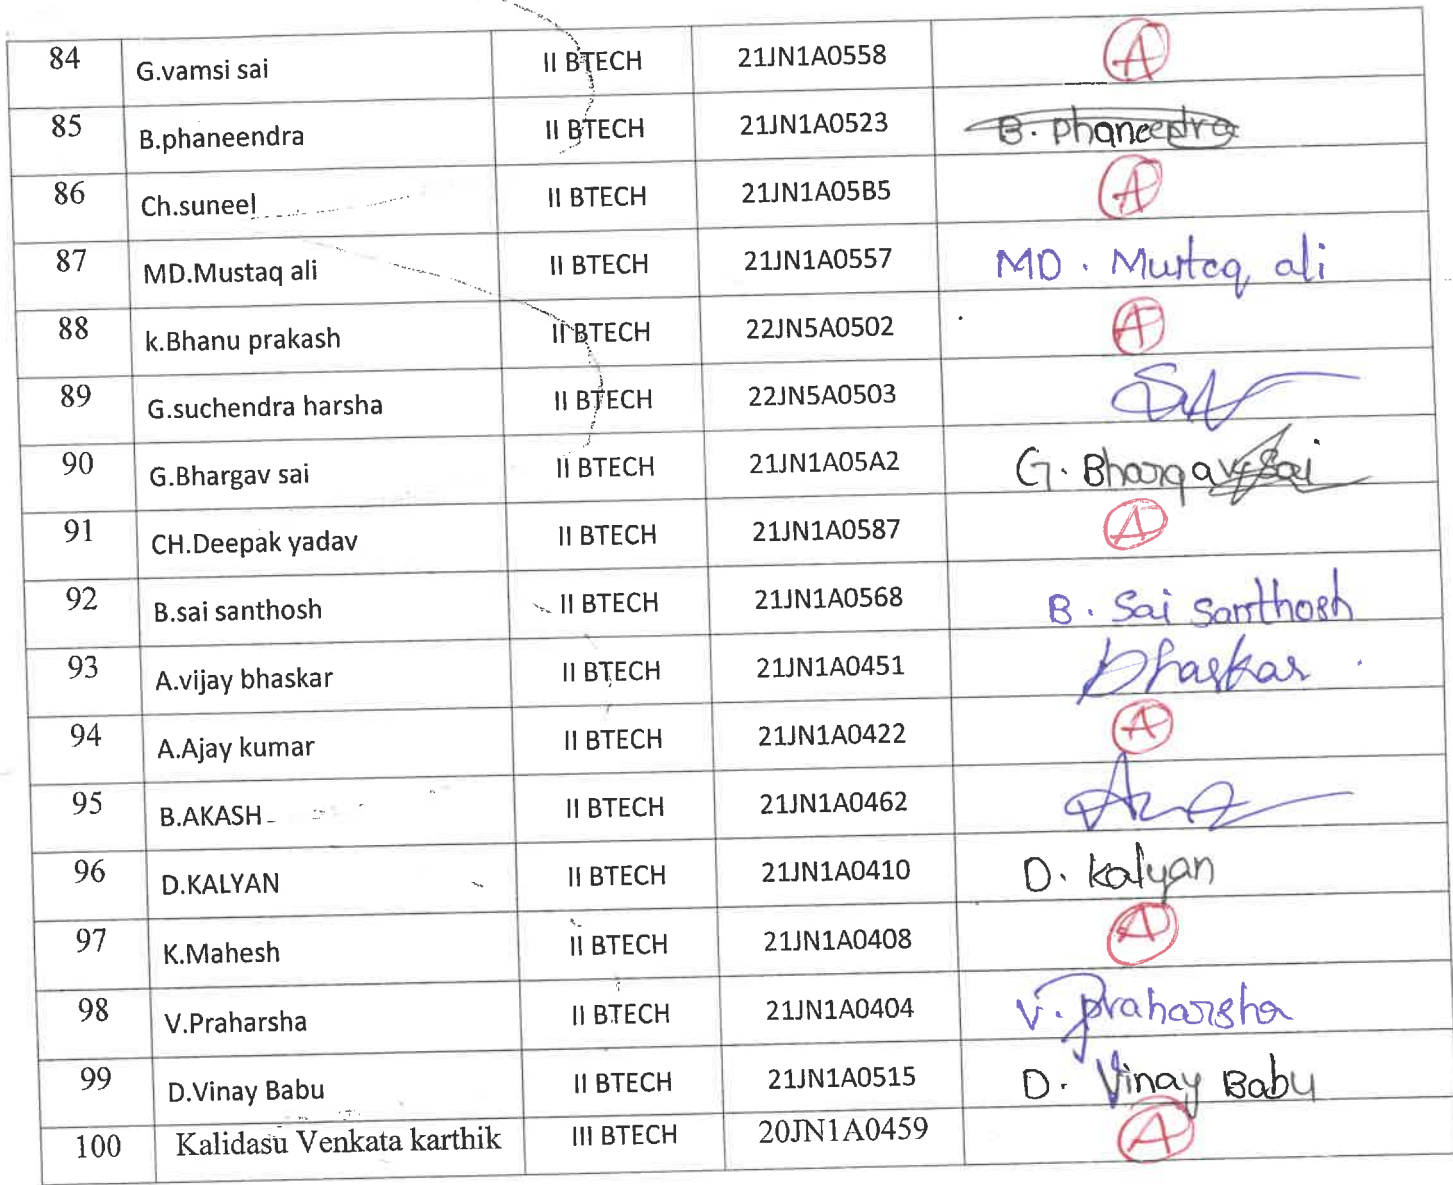 84 G.vamsi sai II BTECH 21JN1A0558 A
85 B.phaneendra II BTECH 21JN1A0523 B. Phaneendra
86 Ch.suneel II BTECH 21JN1A05B5 A
87 MD.Mustaq ali II BTECH 21JN1A0557 MD. Mustaq ali
88 k.Bhanu prakash II BTECH 22JN5A0502 A
89 G.suchendra harsha II BTECH 22JN5A0503
90 G.Bhargav sai II BTECH 21JN1A05A2 G. Bhargav sai
91 CH.Deepak yadav II BTECH 21JN1A0587 A
92 B.sai santhosh II BTECH 21JN1A0568 B. Sai Santhosh
93 A.vijay bhaskar II BTECH 21JN1A0451 bhaskar
94 A.Ajay kumar II BTECH 21JN1A0422 A
95 B.AKASH II BTECH 21JN1A0462
96 D.KALYAN II BTECH 21JN1A0410 D. kalyan
97 K.Mahesh II BTECH 21JN1A0408 A
98 V.Praharsha II BTECH 21JN1A0404 V. praharsha
99 D.Vinay Babu II BTECH 21JN1A0515 D. Vinay Babu
100 Kalidasu Venkata karthik III BTECH 20JN1A0459 A